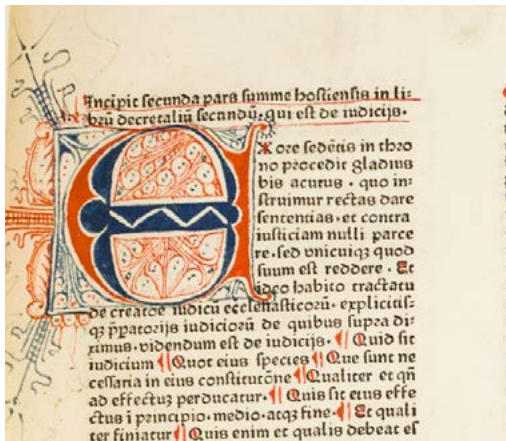 Incipit secunda pars summe hostiensis in li-
brū decretaliū secundū. qui est de iudicijs.
EX ore sedētis in thro
no procedit gladius
bis acutus . quo in-
struimur rectas dare
sentencias . et contra
iusticiam nulli parce
re . sed vnicuiqꝫ quod
suum est reddere . Et
ideo habito tractatu
de creatōe iudicū ecclesiasticorū . explicitis-
qꝫ p̄patorijs iudiciorū de quibus supra di-
ximus . videndum est de iudicijs . ¶ Quid sit
iudicium ¶ Quot eius species ¶ Que sunt ne
cessaria in eius constitutōne ¶ Qualiter et qn̄
ad effectuꝫ perducatur . ¶ Quis sit eius effe
ctus ī principio . medio . atqꝫ fine . ¶ Et quali
ter finiatur ¶ Quis enim et qualis debeat es